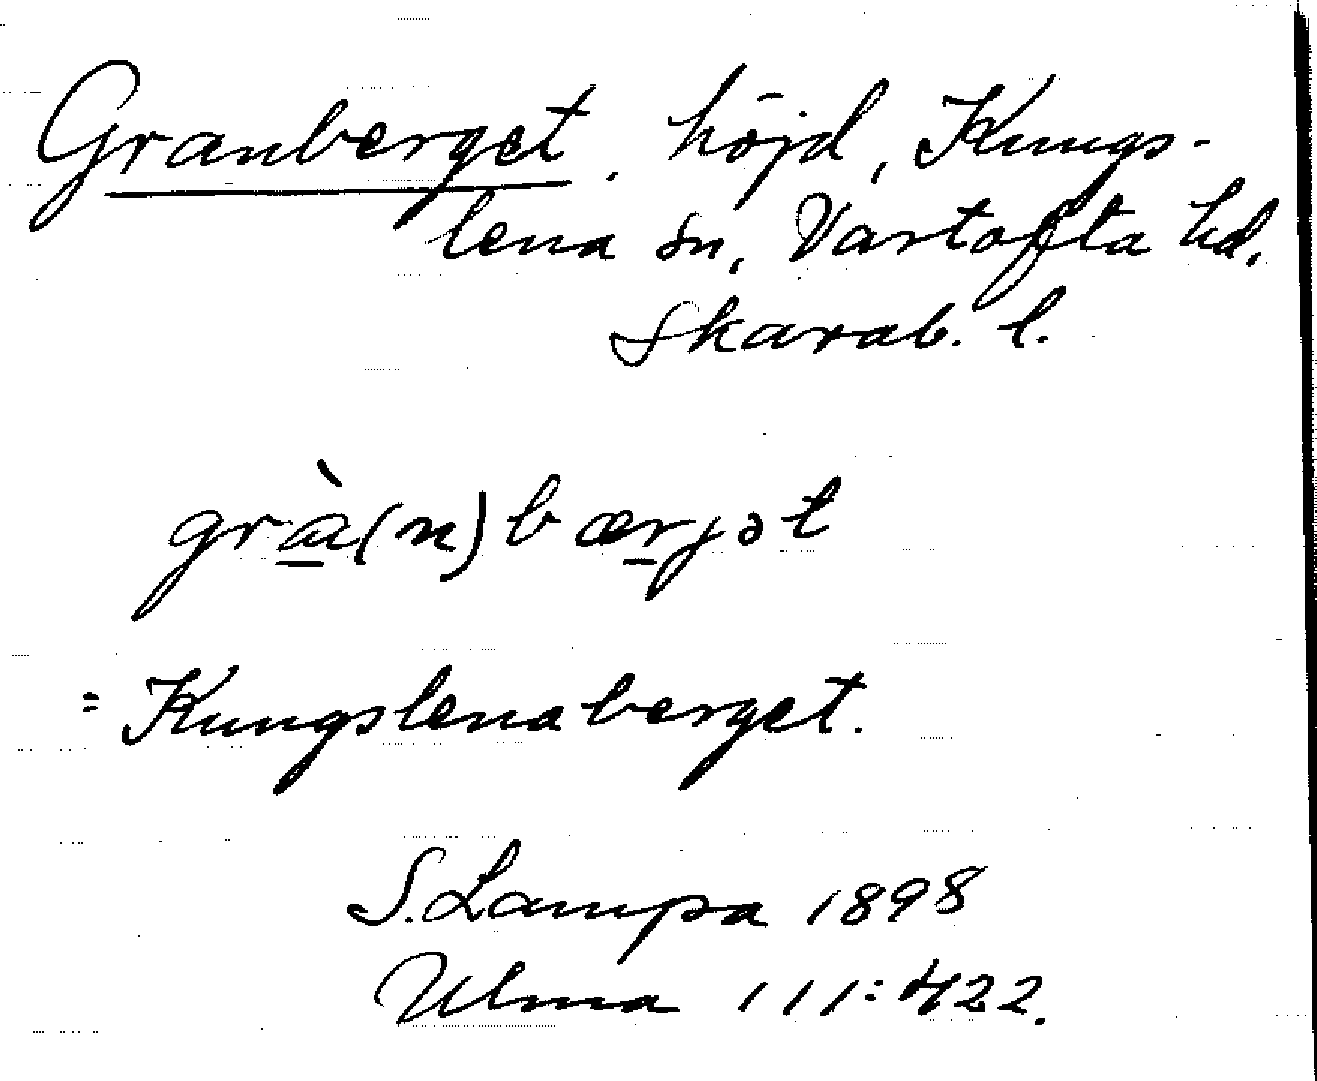 Granberget, höjd, Kungs-
lena sn, Vartofta hd,
Skarab. l.
grà(n)bærjət
= Kungslenaberget.
S. Lampa 1898
Ulma 111:422.